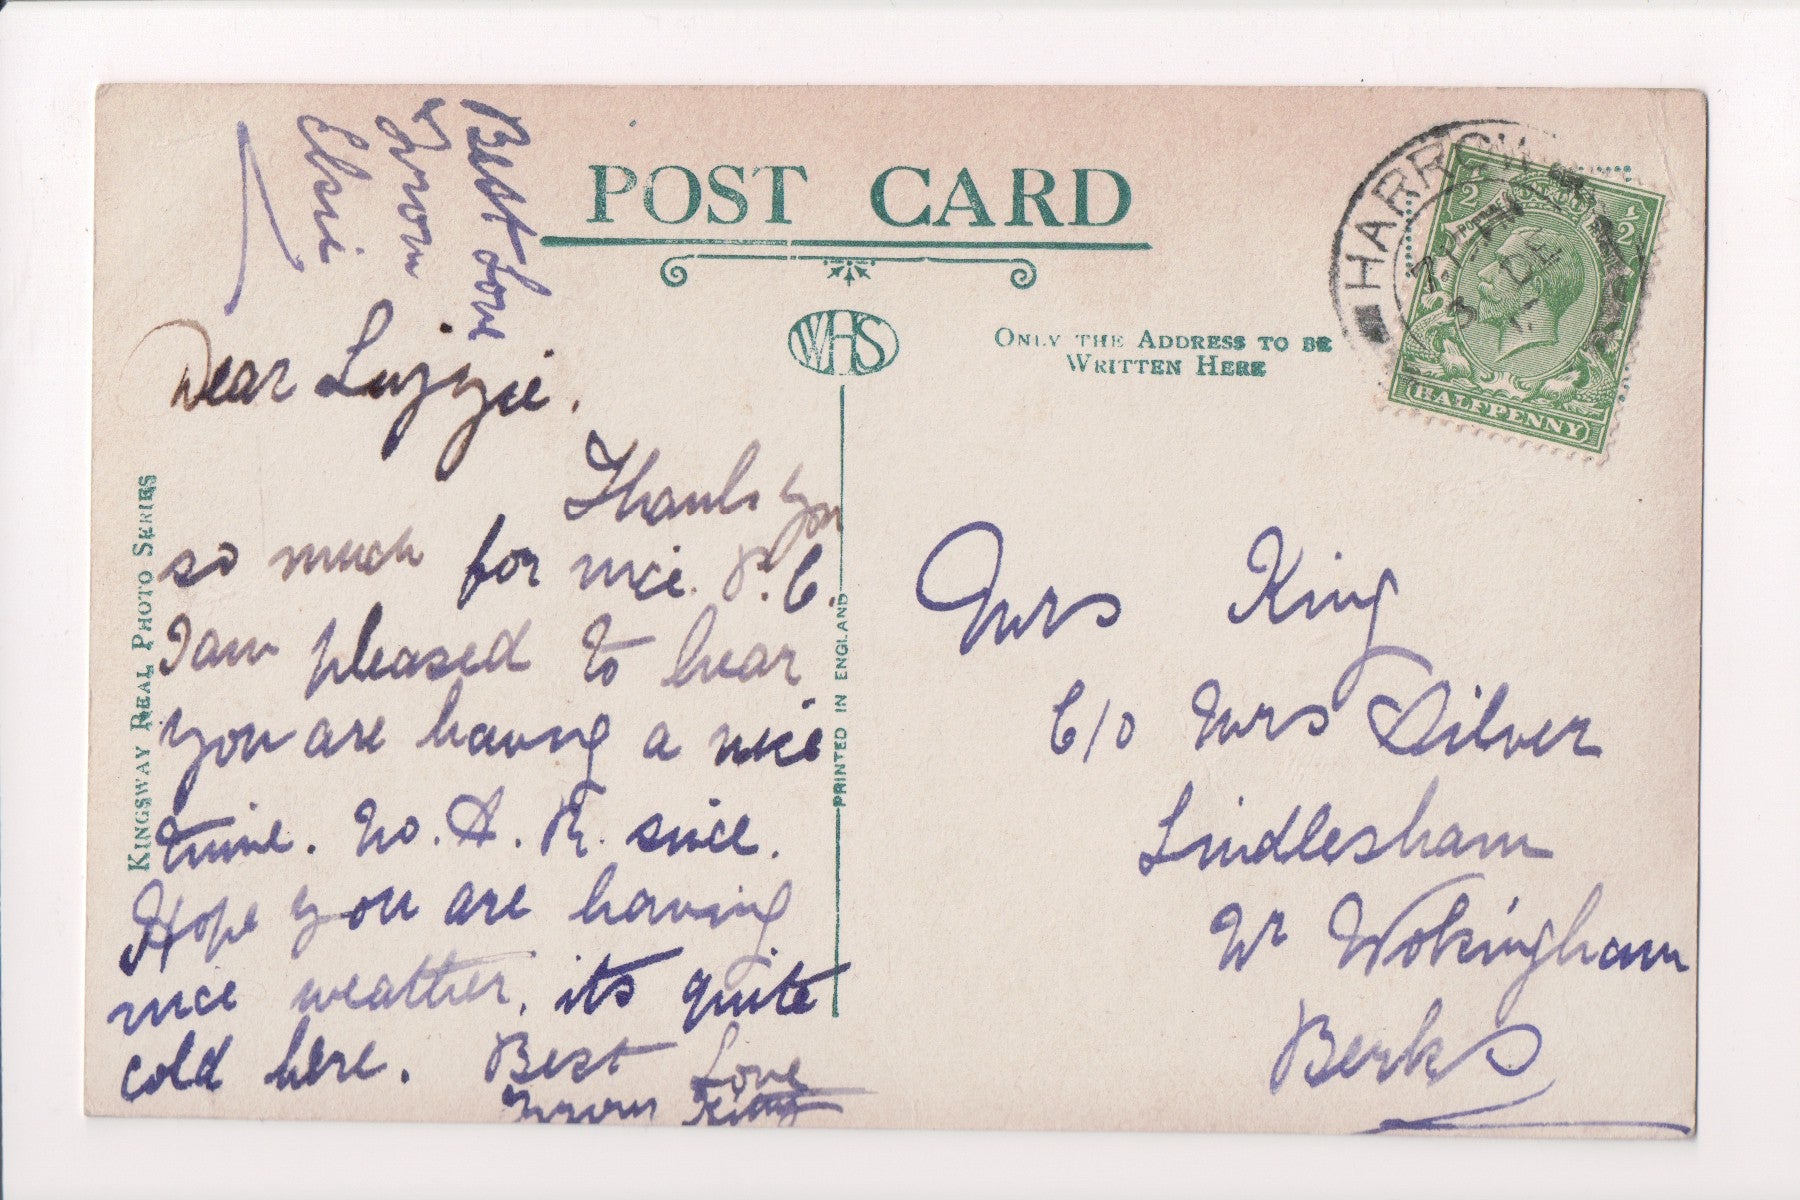 Best Love
from
Elsie
POST CARD
WHS
ONLY THE ADDRESS TO BE
WRITTEN HERE
HARROW
HALFPENNY
KINGSWAY REAL PHOTO SERIES
PRINTED IN ENGLAND
Dear Lizzie.
Thank you
so much for nice. P.C.
I am pleased to hear
you are having a nice
time. No. A. R. since.
Hope you are having
nice weather, its quite
cold here. Best Love
from Kitty
Mrs King
C/o Mrs Silver
Lindlesham
Nr Wokingham
Berks